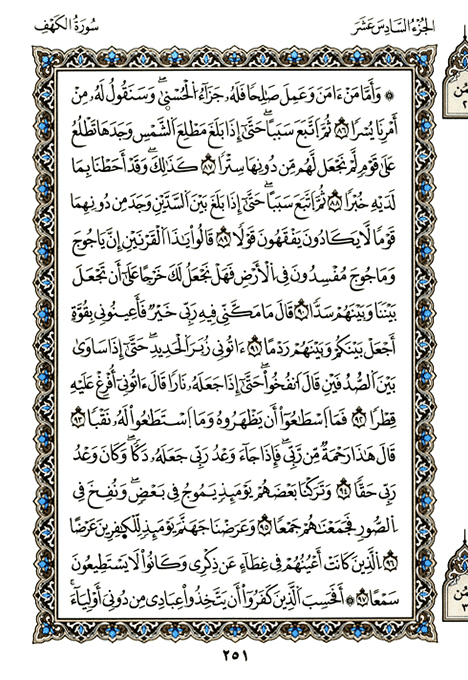 الجُزْءُ السَّادِسَ عَشَرَ
سُورَةُ الكَهْفِ
۞ وَأَمَّا مَنْ ءَامَنَ وَعَمِلَ صَٰلِحًا فَلَهُۥ جَزَآءُ الْحُسْنَىٰ وَسَنَقُولُ لَهُۥ مِنْ
أَمْرِنَا يُسْرًا ٨٦ ثُمَّ اتَّبَعَ سَبَبًا حَتَّىٰ إِذَا بَلَغَ مَطْلِعَ الشَّمْسِ وَجَدَهَا تَطْلُعُ
عَلَىٰ قَوْمٍ لَّمْ نَجْعَل لَّهُم مِّن دُونِهَا سِتْرًا ٨٧ كَذَٰلِكَ وَقَدْ أَحَطْنَا بِمَا
لَدَيْهِ خُبْرًا ٨٨ ثُمَّ اتَّبَعَ سَبَبًا حَتَّىٰ إِذَا بَلَغَ بَيْنَ السَّدَّيْنِ وَجَدَ مِن دُونِهِمَا
قَوْمًا لَّا يَكَادُونَ يَفْقَهُونَ قَوْلًا ٨٩ قَالُوا يَٰذَا الْقَرْنَيْنِ إِنَّ يَاجُوجَ
وَمَاجُوجَ مُفْسِدُونَ فِي الْأَرْضِ فَهَلْ نَجْعَلُ لَكَ خَرْجًا عَلَىٰ أَن تَجْعَلَ
بَيْنَنَا وَبَيْنَهُمْ سَدًّا ٩٠ قَالَ مَا مَكَّنِّي فِيهِ رَبِّي خَيْرٌ فَأَعِينُونِي بِقُوَّةٍ
أَجْعَلْ بَيْنَكُمْ وَبَيْنَهُمْ رَدْمًا ٩١ ءَاتُونِي زُبَرَ الْحَدِيدِ حَتَّىٰ إِذَا سَاوَىٰ
بَيْنَ الصُّدُفَيْنِ قَالَ انفُخُوا حَتَّىٰ إِذَا جَعَلَهُۥ نَارًا قَالَ ءَاتُونِي أُفْرِغْ عَلَيْهِ
قِطْرًا ٩٢ فَمَا اسْطَٰعُوا أَن يَظْهَرُوهُ وَمَا اسْتَطَٰعُوا لَهُۥ نَقْبًا ٩٣
قَالَ هَٰذَا رَحْمَةٌ مِّن رَّبِّي فَإِذَا جَآءَ وَعْدُ رَبِّي جَعَلَهُۥ دَكًّا وَكَانَ وَعْدُ
رَبِّي حَقًّا ٩٤ وَتَرَكْنَا بَعْضَهُمْ يَوْمَئِذٍ يَمُوجُ فِي بَعْضٍ وَنُفِخَ فِي
الصُّورِ فَجَمَعْنَٰهُمْ جَمْعًا ٩٥ وَعَرَضْنَا جَهَنَّمَ يَوْمَئِذٍ لِّلْكَٰفِرِينَ عَرْضًا
٩٦ الَّذِينَ كَانَتْ أَعْيُنُهُمْ فِي غِطَآءٍ عَن ذِكْرِي وَكَانُوا لَا يَسْتَطِيعُونَ
سَمْعًا ٩٧ ۞ أَفَحَسِبَ الَّذِينَ كَفَرُوا أَن يَتَّخِذُوا عِبَادِي مِن دُونِي أَوْلِيَآءَ
٢٥١